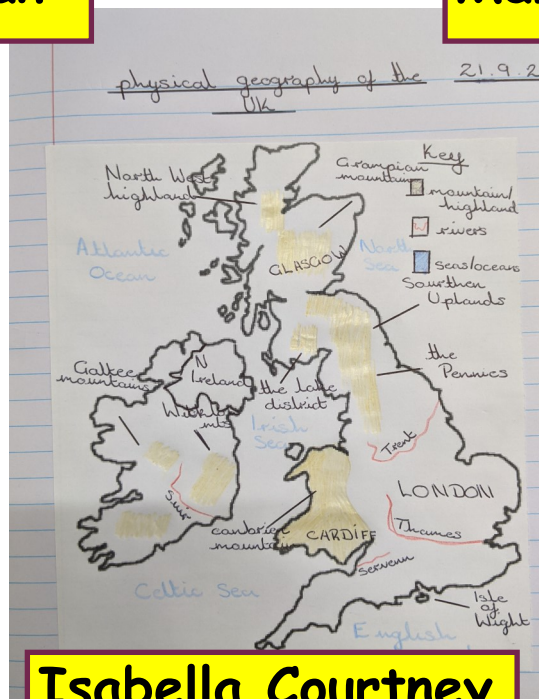 physical geography of the
UK
21.9.2
North West
highland
Grampian
mountains
Key
mountain/
highland
rivers
seas/oceans
Atlantic
Ocean
North
Sea
GLASGOW
Sourthen
Uplands
the
Pennies
Galtee
mountains
N
Ireland
the lake
district
Wicklow
mts
Irish
Sea
Trent
Suir
LONDON
Thames
cambrien
mountain
CARDIFF
Servenn
Celtic Sea
Isle
of
Wight
English
Isabella Courtney